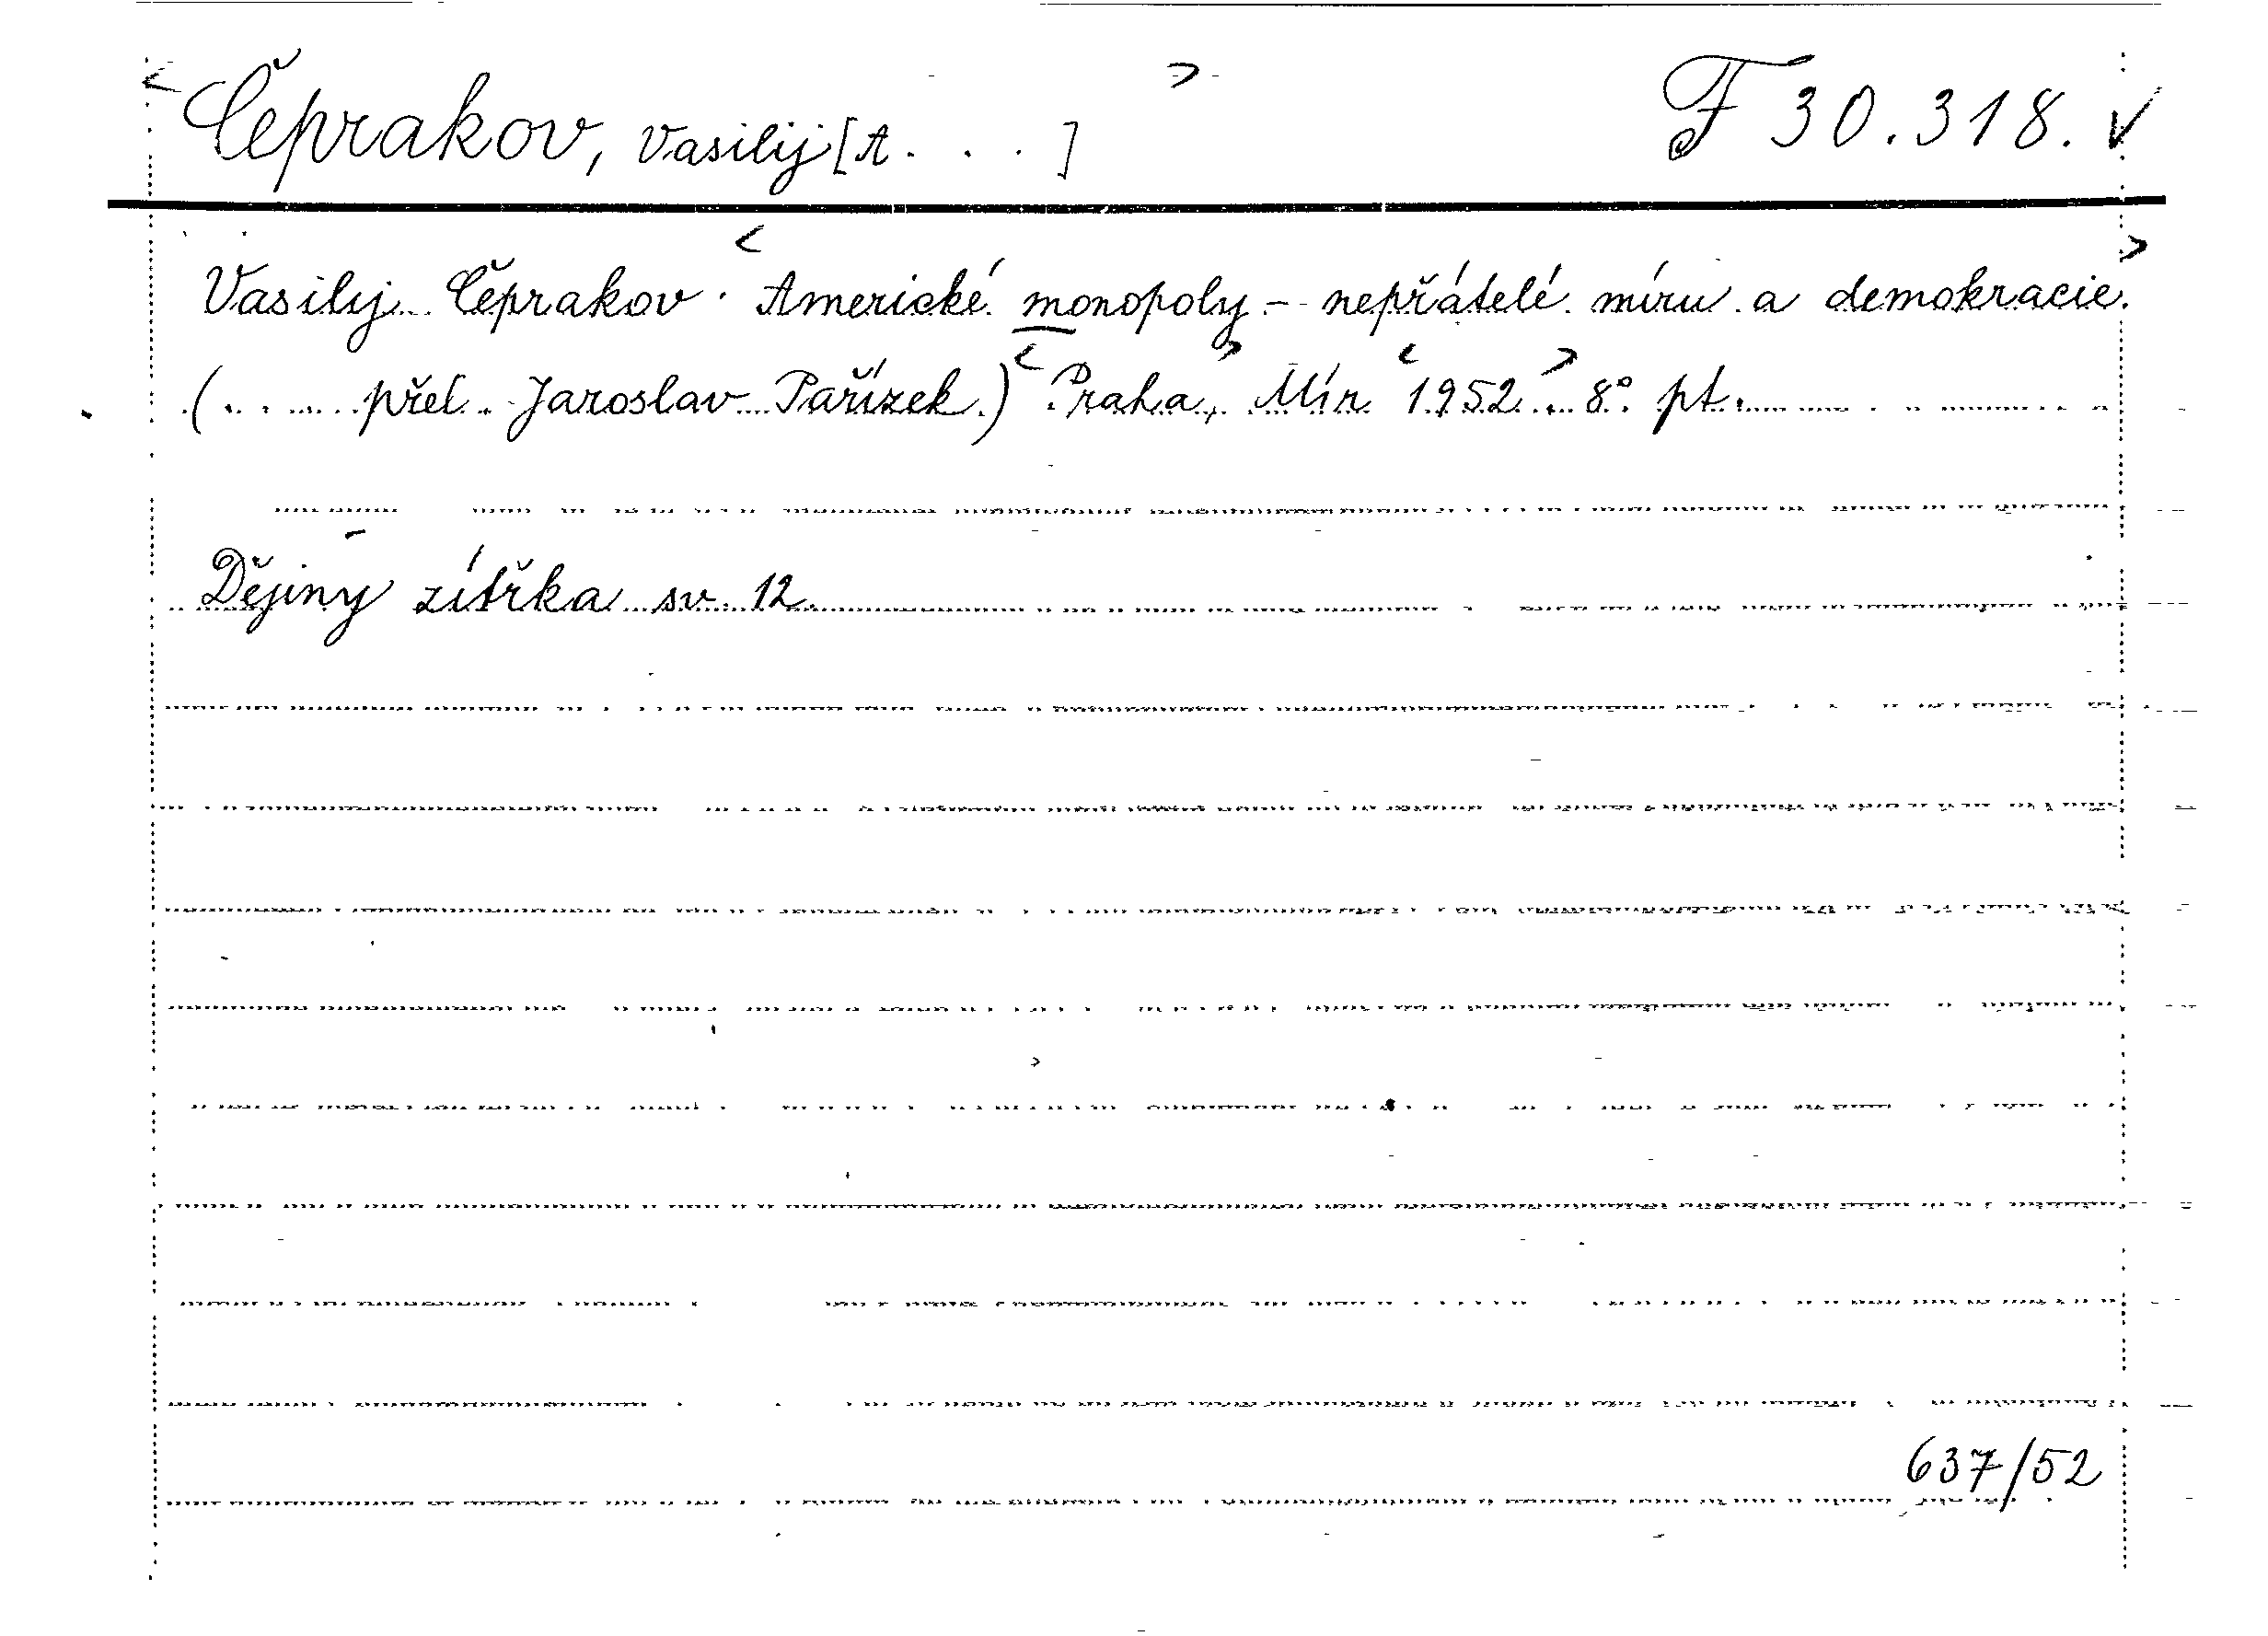 <Čeprakov, Vasilij [A. . . ]> F 30.318. √
Vasilij Čeprakov: <Americké monopoly - nepřátelé míru a demokracie.>
(. . . . přel. Jaroslav Pařízek.) <Praha,> Mír <1952>. 8° pt.
Dějiny zítřka sv. 12.
637/52